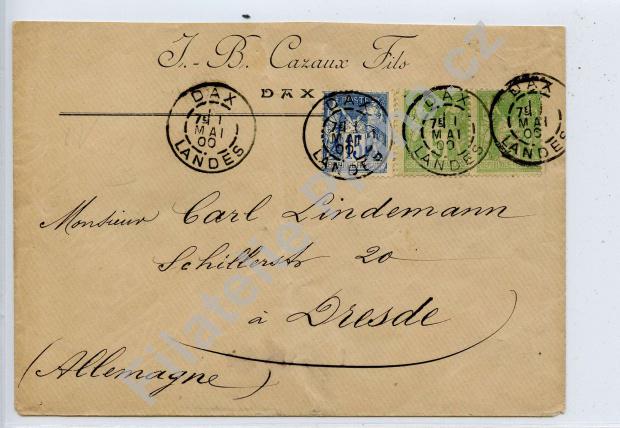 J.-B. Cazaux Fils
DAX
DAX
7E 1
MAI
00
LANDES
POSTE
15
DAX
7E 1
MAI
LANDES
DAX
7E 1
MAI
00
LANDES
DAX
MAI
00
LANDES
Monsieur Carl Lindemann
Schillerstr 20
à Dresde
(Allemagne)
Filatelie
cz